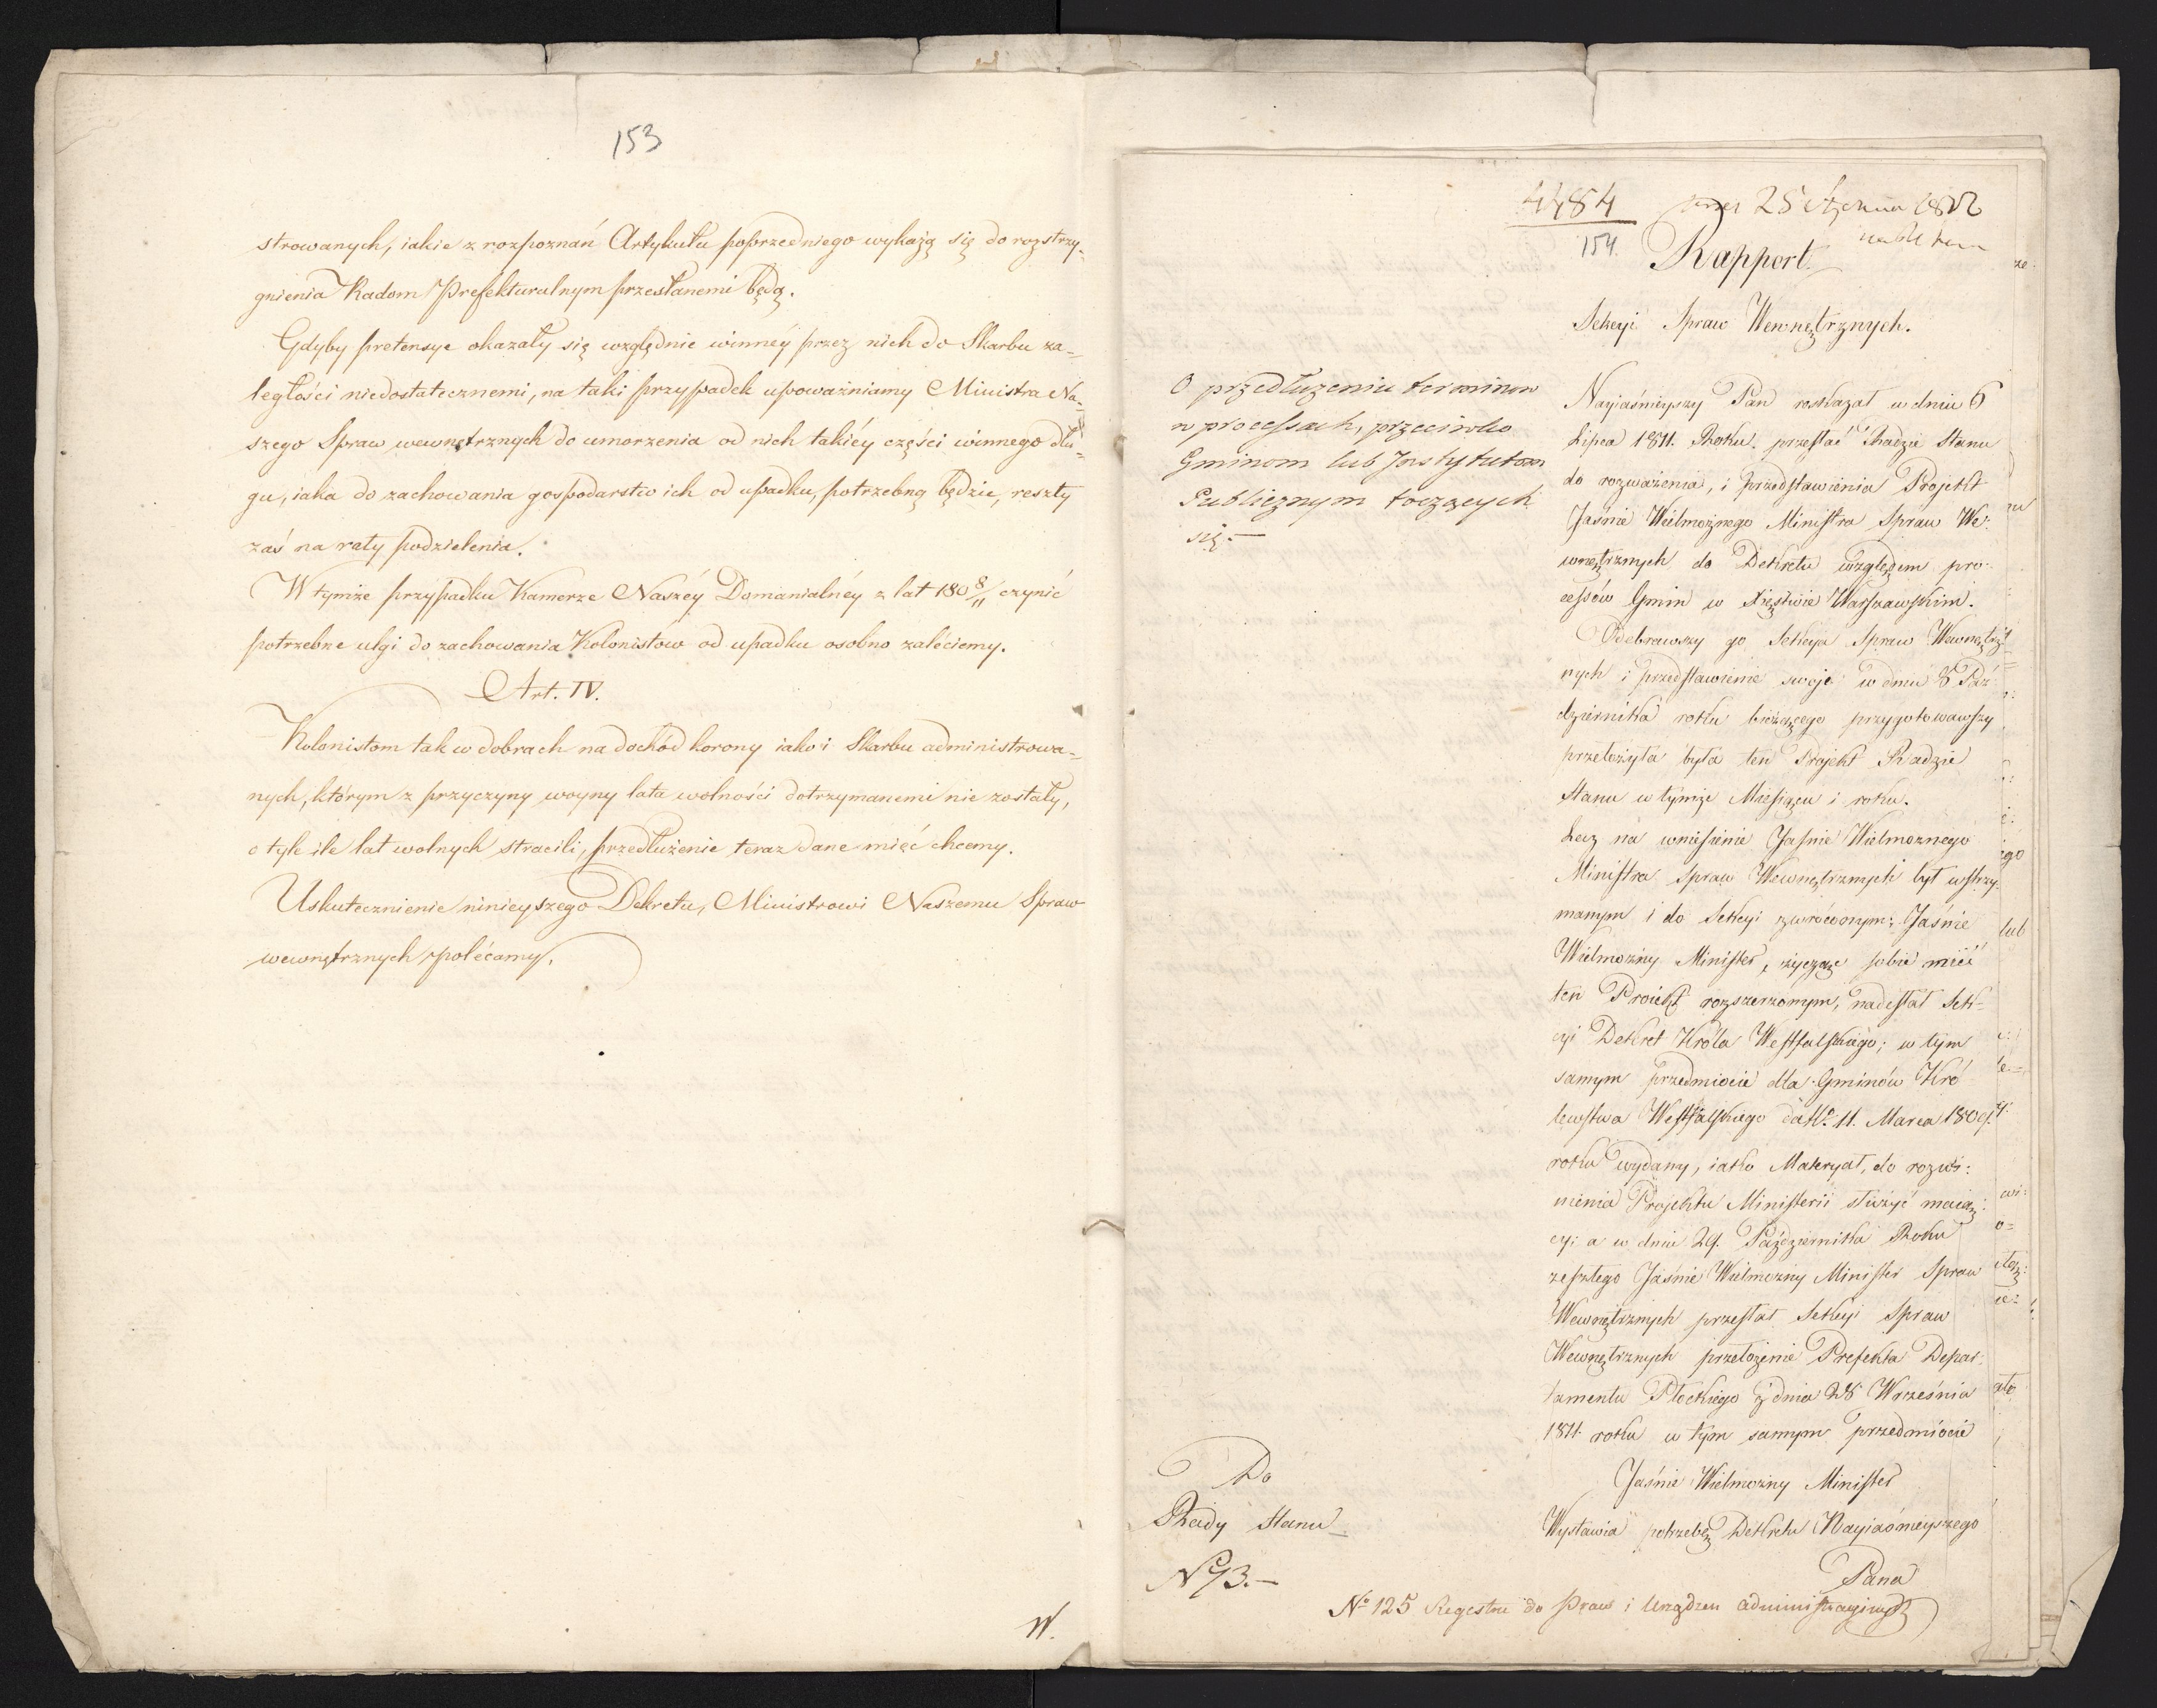 153
strowanych, iakie z rozpoznań Artykułu poprzedniego wykażą się do rozstrzy-
gnienia Radom Prefekturalnym przesłanemi będą.
Gdyby pretensye okazały się względnie winnéy przez nich do Skarbu za-
ległości niedostatecznemi, na taki przypadek upoważniamy Ministra Na-
szego Spraw wewnętrznych do umorzenia od nich takiéy części winnego dłu-
gu, iaka do zachowania gospodarstw ich od upadku, potrzebną będzie, reszty
zaś na raty podzielenia.
W tymże przypadku Kamerze Naszéy Domanialnéy z lat 180 8/11 czynić
potrzebne ulgi do zachowania Kolonistow od upadku osobno zaléciemy.
Art. IV.
Kolonistom tak w dobrach na dochód korony iako i Skarbu administrowa-
nych, którym z przyczyny woyny lata wolności dotrzymanemi nie zostały,
o tyle ile lat wolnych stracili, przedłużenie teraz dane mieć chcemy.
Uskutecznienie ninieyszego Dekretu, Ministrowi Naszemu Spraw
wewnętrznych polécamy.
W.
4484
25 Stycznia
154.
Rapport.
Sekcyi Spraw Wewnętrznych.
O przedłużeniu terminow
w processach, przeciwko
Gminom lub Instytutom
Publicznym toczących
się.-
Nayiaśnieyszy Pan roskazał w dniu 6
Lipca 1811. Roku. przesłać Radzie Stanu
do rozważenia, i przedstawienia Projekt
Jaśnie Wielmożnego Ministra Spraw We:
wnętrznych do Dekretu względem pro:
cessów Gmin w Xięstwie Warszawskim.
Odebrawszy go Sekcya Spraw Wewnętrz-
nych i przedstawienie swoje w dniu 8 Paź:
dziernika roku bieżącego przygotowawszy
przełożyła była ten Projekt Radzie
Stanu w tymże Miesiącu i roku.
Lecz na wniesienie Jaśnie Wielmoznego
Ministra Spraw Wewnętrznych był wstrzy:
manym i do Sekcyi zwróconym; Jaśnie
Wielmożny Minister, życząc sobie mieć
ten Proiekt rozszerzonym, nadesłał Sek-
cyi Dekret Króla Westfalskiego; w tym
samym przedmiocie dla Gminów Kró-
lewstwa Westfalskiego datto 11. Marca 1809.
roku wydany, iako Materyał, do rozwi:
nienia Projektu Ministerii służyć maią:
cy; a w dniu 29. Października Roku
zeszłego Jaśnie Wielmożny Minister Spraw
Wewnętrznych przesłał Sekcyi Spraw
Wewnętrznych przełożenie Prefekta Depar:
tamentu Płockiego z dnia 28 Września
1811 roku w tym samym przedmiocie
Jaśnie Wielmożny Minister
Wystawia potrzebę Dekretu Nayiaśnieyszego
Pana
Do
Rady Stanu
N 93.-
No 125 Regestru do Praw i Urządzen administracyinych